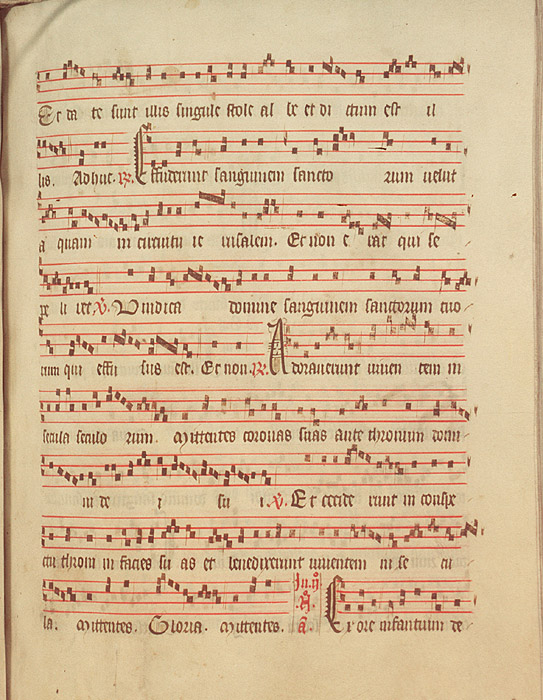 Et da te sunt illis singule stole al be et di ctum est il
lis. Adhuc. R. Effuderunt sanguinem sancto rum uelut
a quam in circuitu ie rusalem. Et non e rat qui se
pe li ret V. Vindica domine sanguinem sanctorum tuo
rum qui effu sus est. Et non. R. Adorauerunt uiuen tem in
secula seculo rum. Mittentes coronas suas ante thronum domi
ni de i su i. V. Et cecide runt in conspe
ctu throni in facies su as et benedixerunt uiuentem in se cu
la. Mittentes. Gloria. Mittentes. In. ij. N. a. Ex ore infantium de